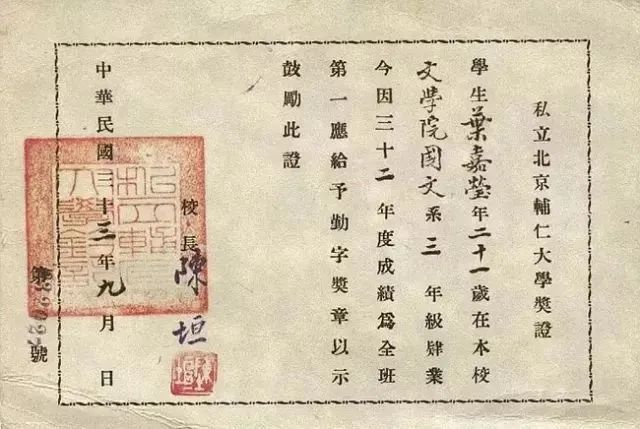 私立北京輔仁大學獎證
學生葉嘉瑩年二十一歲在本校
文學院國文系三年級肄業
今因三十二年度成績爲全班
第一應給予勤字獎章以示
鼓勵此證
校長陳垣
中華民國卅三年九月日
第號